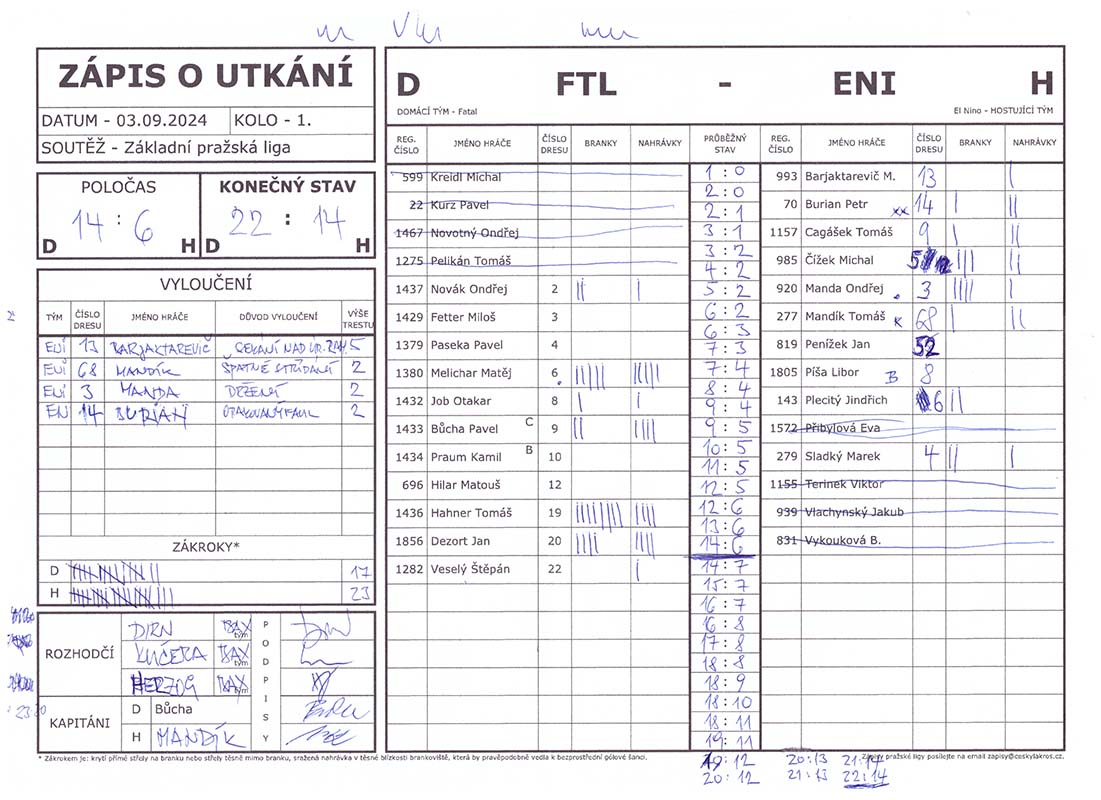 ZÁPIS O UTKÁNÍ
DATUM - 03.09.2024 KOLO - 1.
SOUTĚŽ - Základní pražská liga
POLOČAS KONEČNÝ STAV
14 : 6 22 : 14
D H D H
VYLOUČENÍ
TÝM ČÍSLO DRESU JMÉNO HRÁČE DŮVOD VYLOUČENÍ VÝŠE TRESTU
ENI 13 BARJAKTAREVIČ SEKÁNÍ NAD 5
ENI 68 MANDÍK ŠPATNÉ STŘÍDÁNÍ 2
ENI 3 MANDA DRŽENÍ 2
ENI 14 BURIAN 2
ZÁKROKY*
D 17
H 23
ROZHODČÍ
DIRN TJSAX tým
KUČERA TJSAX tým
HERZOG TJSAX tým
PODPISY
KAPITÁNI
D Bůcha
H MANDÍK
* Zákrokem je: krytí přímé střely na branku nebo střely těsně mimo branku, sražená nahrávka v těsné blízkosti brankoviště, která by pravěpodobně vedla k bezprostřední gólové šanci.
D FTL - ENI H
DOMÁCÍ TÝM - Fatal El Nino - HOSTUJÍCÍ TÝM
REG. ČÍSLO JMÉNO HRÁČE ČÍSLO DRESU BRANKY NAHRÁVKY
599 Kreidl Michal
22 Kurz Pavel
1467 Novotný Ondřej
1275 Pelikán Tomáš
1437 Novák Ondřej 2 || |
1429 Fetter Miloš 3
1379 Paseka Pavel 4
1380 Melichar Matěj 6
1432 Job Otakar 8 | |
1433 Bůcha Pavel C 9 || ||||
1434 Praum Kamil B 10
696 Hilar Matouš 12
1436 Hahner Tomáš 19
1856 Dezort Jan 20 |||| ||||
1282 Veselý Štěpán 22 |
PRŮBĚŽNÝ STAV
1 : 0
2 : 0
2 : 1
3 : 1
3 : 2
4 : 2
5 : 2
6 : 2
6 : 3
7 : 3
7 : 4
8 : 4
9 : 4
9 : 5
10 : 5
11 : 5
12 : 5
12 : 6
13 : 6
14 : 6
14 : 7
15 : 7
16 : 7
16 : 8
17 : 8
18 : 8
18 : 9
18 : 10
18 : 11
19 : 11
19 : 12
20 : 12
20 : 13
21 : 13
21 : 14
22 : 14
REG. ČÍSLO JMÉNO HRÁČE ČÍSLO DRESU BRANKY NAHRÁVKY
993 Barjaktarevič M. 13 |
70 Burian Petr xx 14 | ||
1157 Cagášek Tomáš 9 | ||
985 Čížek Michal ||| ||
920 Manda Ondřej 3 |||| |
277 Mandík Tomáš K 68 | ||
819 Penížek Jan 52
1805 Píša Libor B 8
143 Plecitý Jindřich 6 ||
1572 Přibylová Eva
279 Sladký Marek 4 || |
1155 Terinek Viktor
939 Vlachynský Jakub
831 Vykouková B.
Zápisy pražské ligy posílejte na email zapisy@ceskylakros.cz.